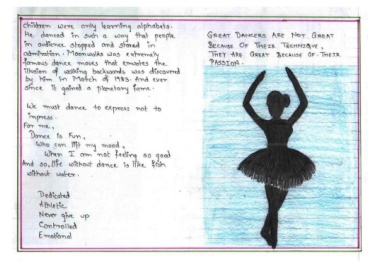 children were only learning alphabets.
He danced in such a way that people
in audience stopped and stared in
admiration. Moonwalks was extremely
famous dance moves that creates the
illusion of walking backwards was discovered
by him in March of 1983. And ever
since it gained a planetary fame.
We must dance to express not to
impress.
For me,
Dance is Fun,
Who can lift my mood,
When I am not feeling so good
And so, life without dance is like fish
without water.
Dedicated
Athletic
Never give up
Controlled
Emotional
GREAT DANCERS ARE NOT GREAT
BECAUSE OF THEIR TECHNIQUE,
THEY ARE GREAT BECAUSE OF THEIR
PASSION.